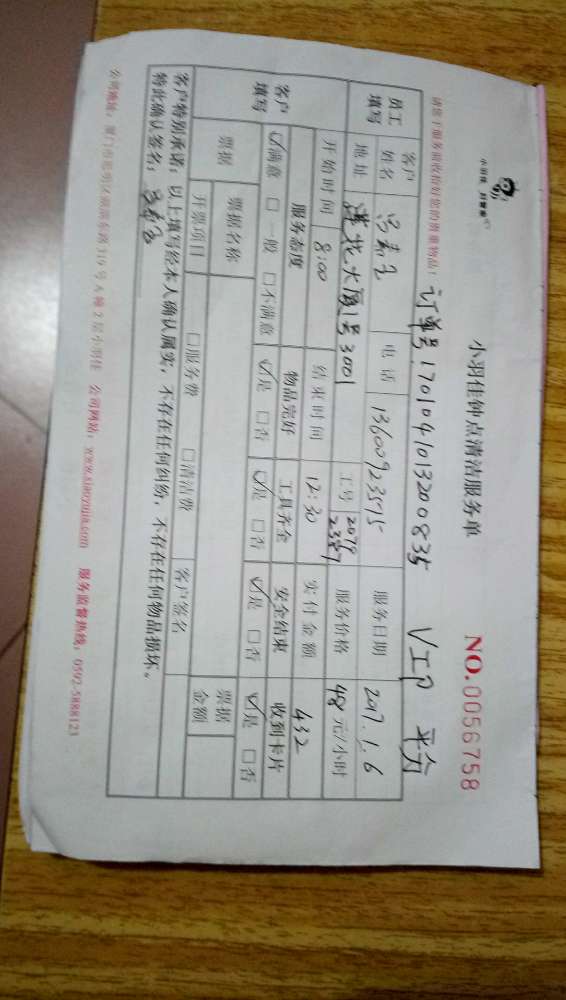 小羽佳钟点清洁服务单
NO.0056758
请客户服务前收检好您的贵重物品:
订单号1701041013200835 VIP 平台
员工填写 客户姓名 电话 13600923575 服务日期 2017.1.6
地址 莲花大厦1号3001 工号 2079 服务价格 48元/小时
开始时间 8:00 结束时间 12:30 实付金额 432
客户填写 服务态度 物品完好 工具齐全 安全结束 收到卡片
☑满意 □一般 □不满意 ☑是 □否 ☑是 □否 ☑是 □否 ☑是 □否
票据 票据名称 票据金额
开票项目 □服务费 □清洁费 客户签名
客户特别承诺:以上填写经本人确认属实,不存在任何纠纷,不存在任何物品损坏。
特此确认签名:
公司地址:厦门市思明区莲前东路319号A幢2层小羽佳 公司网站:www.xiaoyujia.com 服务监督热线:0592-5888123